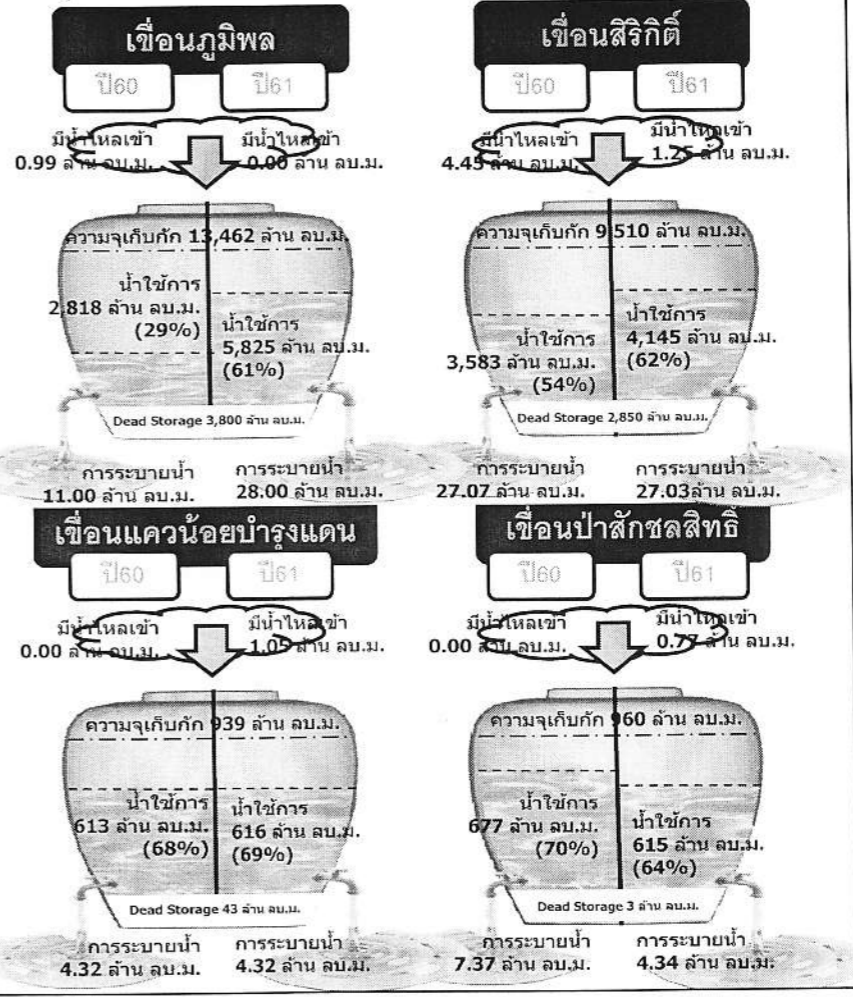 เขื่อนภูมิพล
ปี60 ปี61
มีน้ำไหลเข้า
0.99 ล้าน ลบ.ม.
มีน้ำไหลเข้า
0.00 ล้าน ลบ.ม.
ความจุเก็บกัก 13,462 ล้าน ลบ.ม.
น้ำใช้การ
2,818 ล้าน ลบ.ม.
(29%)
น้ำใช้การ
5,825 ล้าน ลบ.ม.
(61%)
Dead Storage 3,800 ล้าน ลบ.ม.
การระบายน้ำ
11.00 ล้าน ลบ.ม.
การระบายน้ำ
28.00 ล้าน ลบ.ม.
เขื่อนสิริกิติ์
ปี60 ปี61
มีน้ำไหลเข้า
4.45 ล้าน ลบ.ม.
มีน้ำไหลเข้า
1.25 ล้าน ลบ.ม.
ความจุเก็บกัก 9,510 ล้าน ลบ.ม.
น้ำใช้การ
3,583 ล้าน ลบ.ม.
(54%)
น้ำใช้การ
4,145 ล้าน ลบ.ม.
(62%)
Dead Storage 2,850 ล้าน ลบ.ม.
การระบายน้ำ
27.07 ล้าน ลบ.ม.
การระบายน้ำ
27.03ล้าน ลบ.ม.
เขื่อนแควน้อยบำรุงแดน
ปี60 ปี61
มีน้ำไหลเข้า
0.00 ล้าน ลบ.ม.
มีน้ำไหลเข้า
1.05 ล้าน ลบ.ม.
ความจุเก็บกัก 939 ล้าน ลบ.ม.
น้ำใช้การ
613 ล้าน ลบ.ม.
(68%)
น้ำใช้การ
616 ล้าน ลบ.ม.
(69%)
Dead Storage 43 ล้าน ลบ.ม.
การระบายน้ำ
4.32 ล้าน ลบ.ม.
การระบายน้ำ
4.32 ล้าน ลบ.ม.
เขื่อนป่าสักชลสิทธิ์
ปี60 ปี61
มีน้ำไหลเข้า
0.00 ล้าน ลบ.ม.
มีน้ำไหลเข้า
0.77 ล้าน ลบ.ม.
ความจุเก็บกัก 960 ล้าน ลบ.ม.
น้ำใช้การ
677 ล้าน ลบ.ม.
(70%)
น้ำใช้การ
615 ล้าน ลบ.ม.
(64%)
Dead Storage 3 ล้าน ลบ.ม.
การระบายน้ำ
7.37 ล้าน ลบ.ม.
การระบายน้ำ
4.34 ล้าน ลบ.ม.